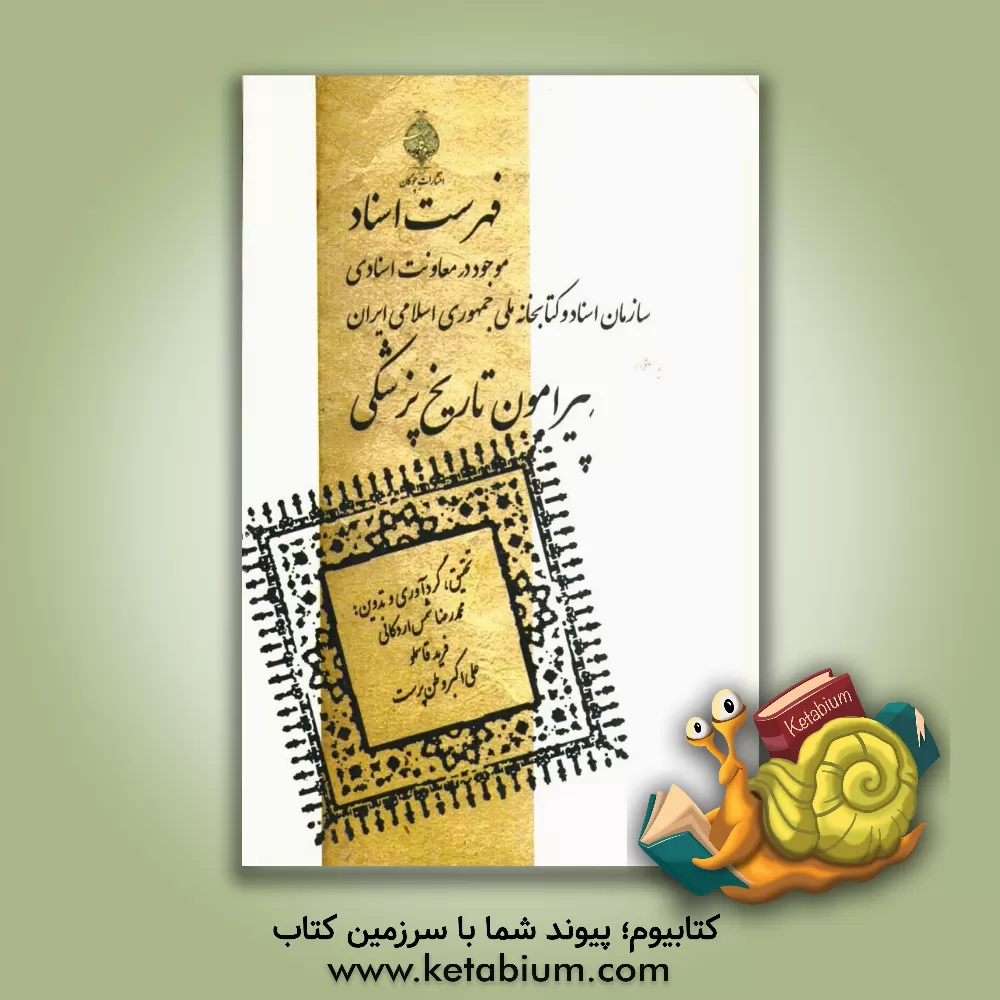 انتشارات چوگان
فهرست اسناد
موجود در معاونت اسنادی
سازمان اسناد و کتابخانه ملی جمهوری اسلامی ایران
پیرامون تاریخ پزشکی
تحقیق، گردآوری و تدوین:
محمدرضا شمس اردکانی
فرید قاسملو
علی اکبر وطن پرست
Ketabium
کتابیوم؛ پیوند شما با سرزمین کتاب
www.ketabium.com